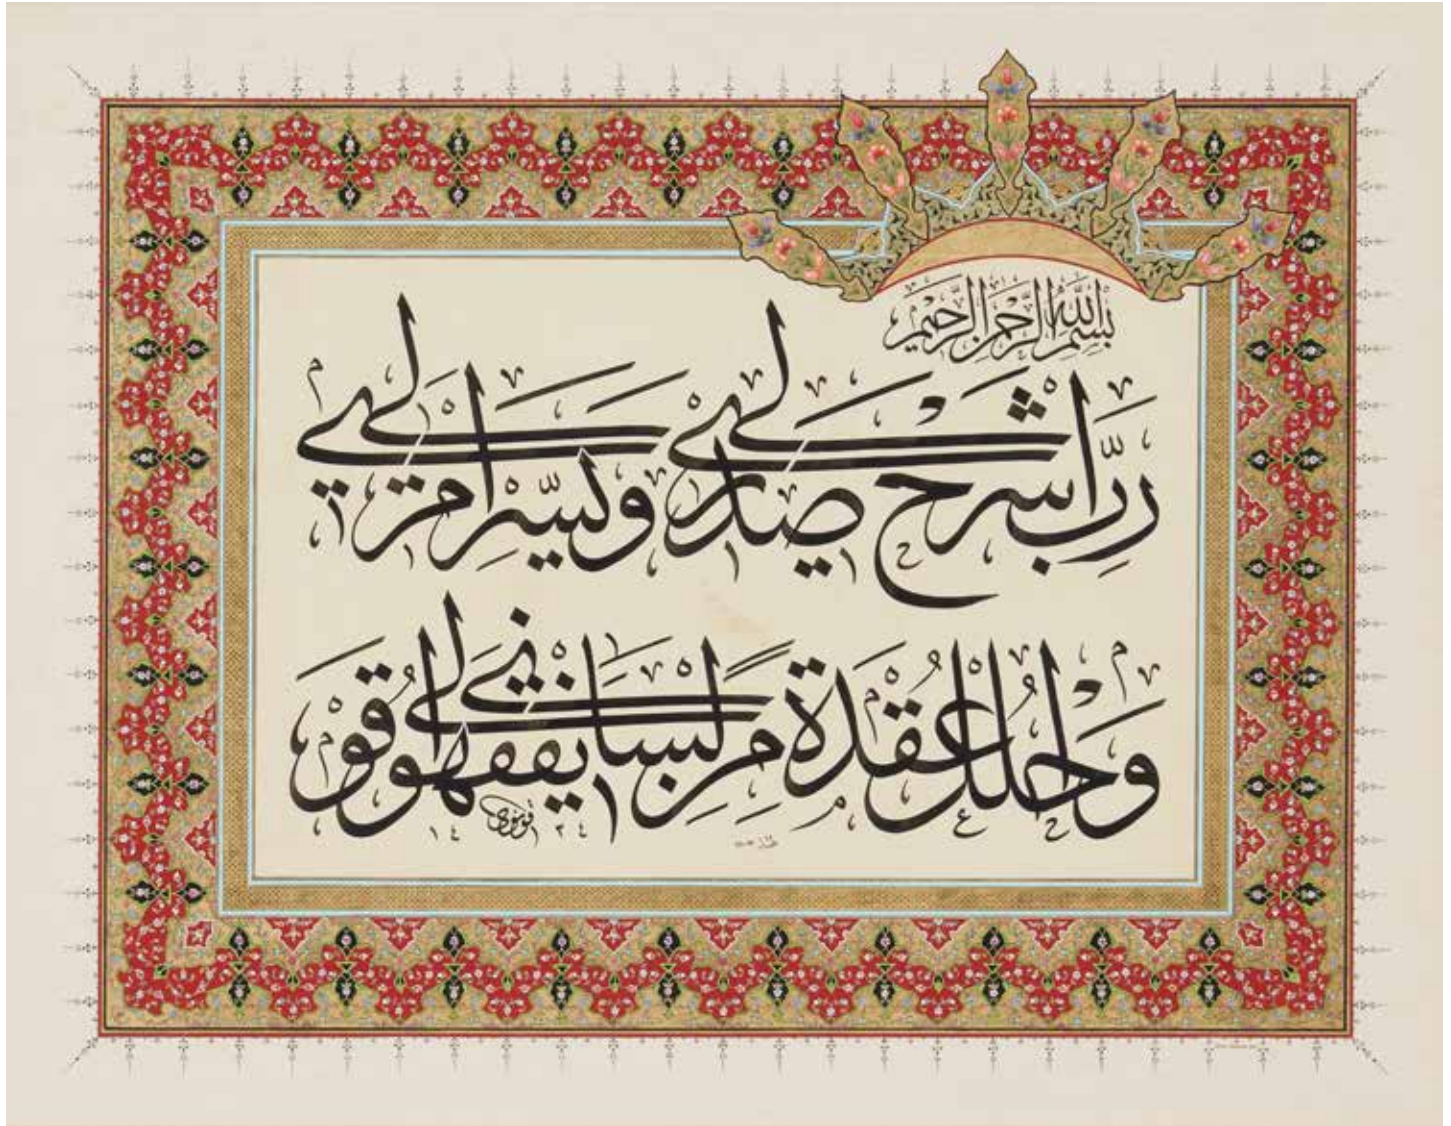 بِسْمِ اللهِ الرَّحْمٰنِ الرَّحِيْمِ
رَبِّ اشْرَحْ لِيْ صَدْرِيْ وَيَسِّرْ لِيْ اَمْرِيْ
وَاحْلُلْ عُقْدَةً مِنْ لِسَانِيْ يَفْقَهُوا قَوْلِيْ
١٤ ٢٤